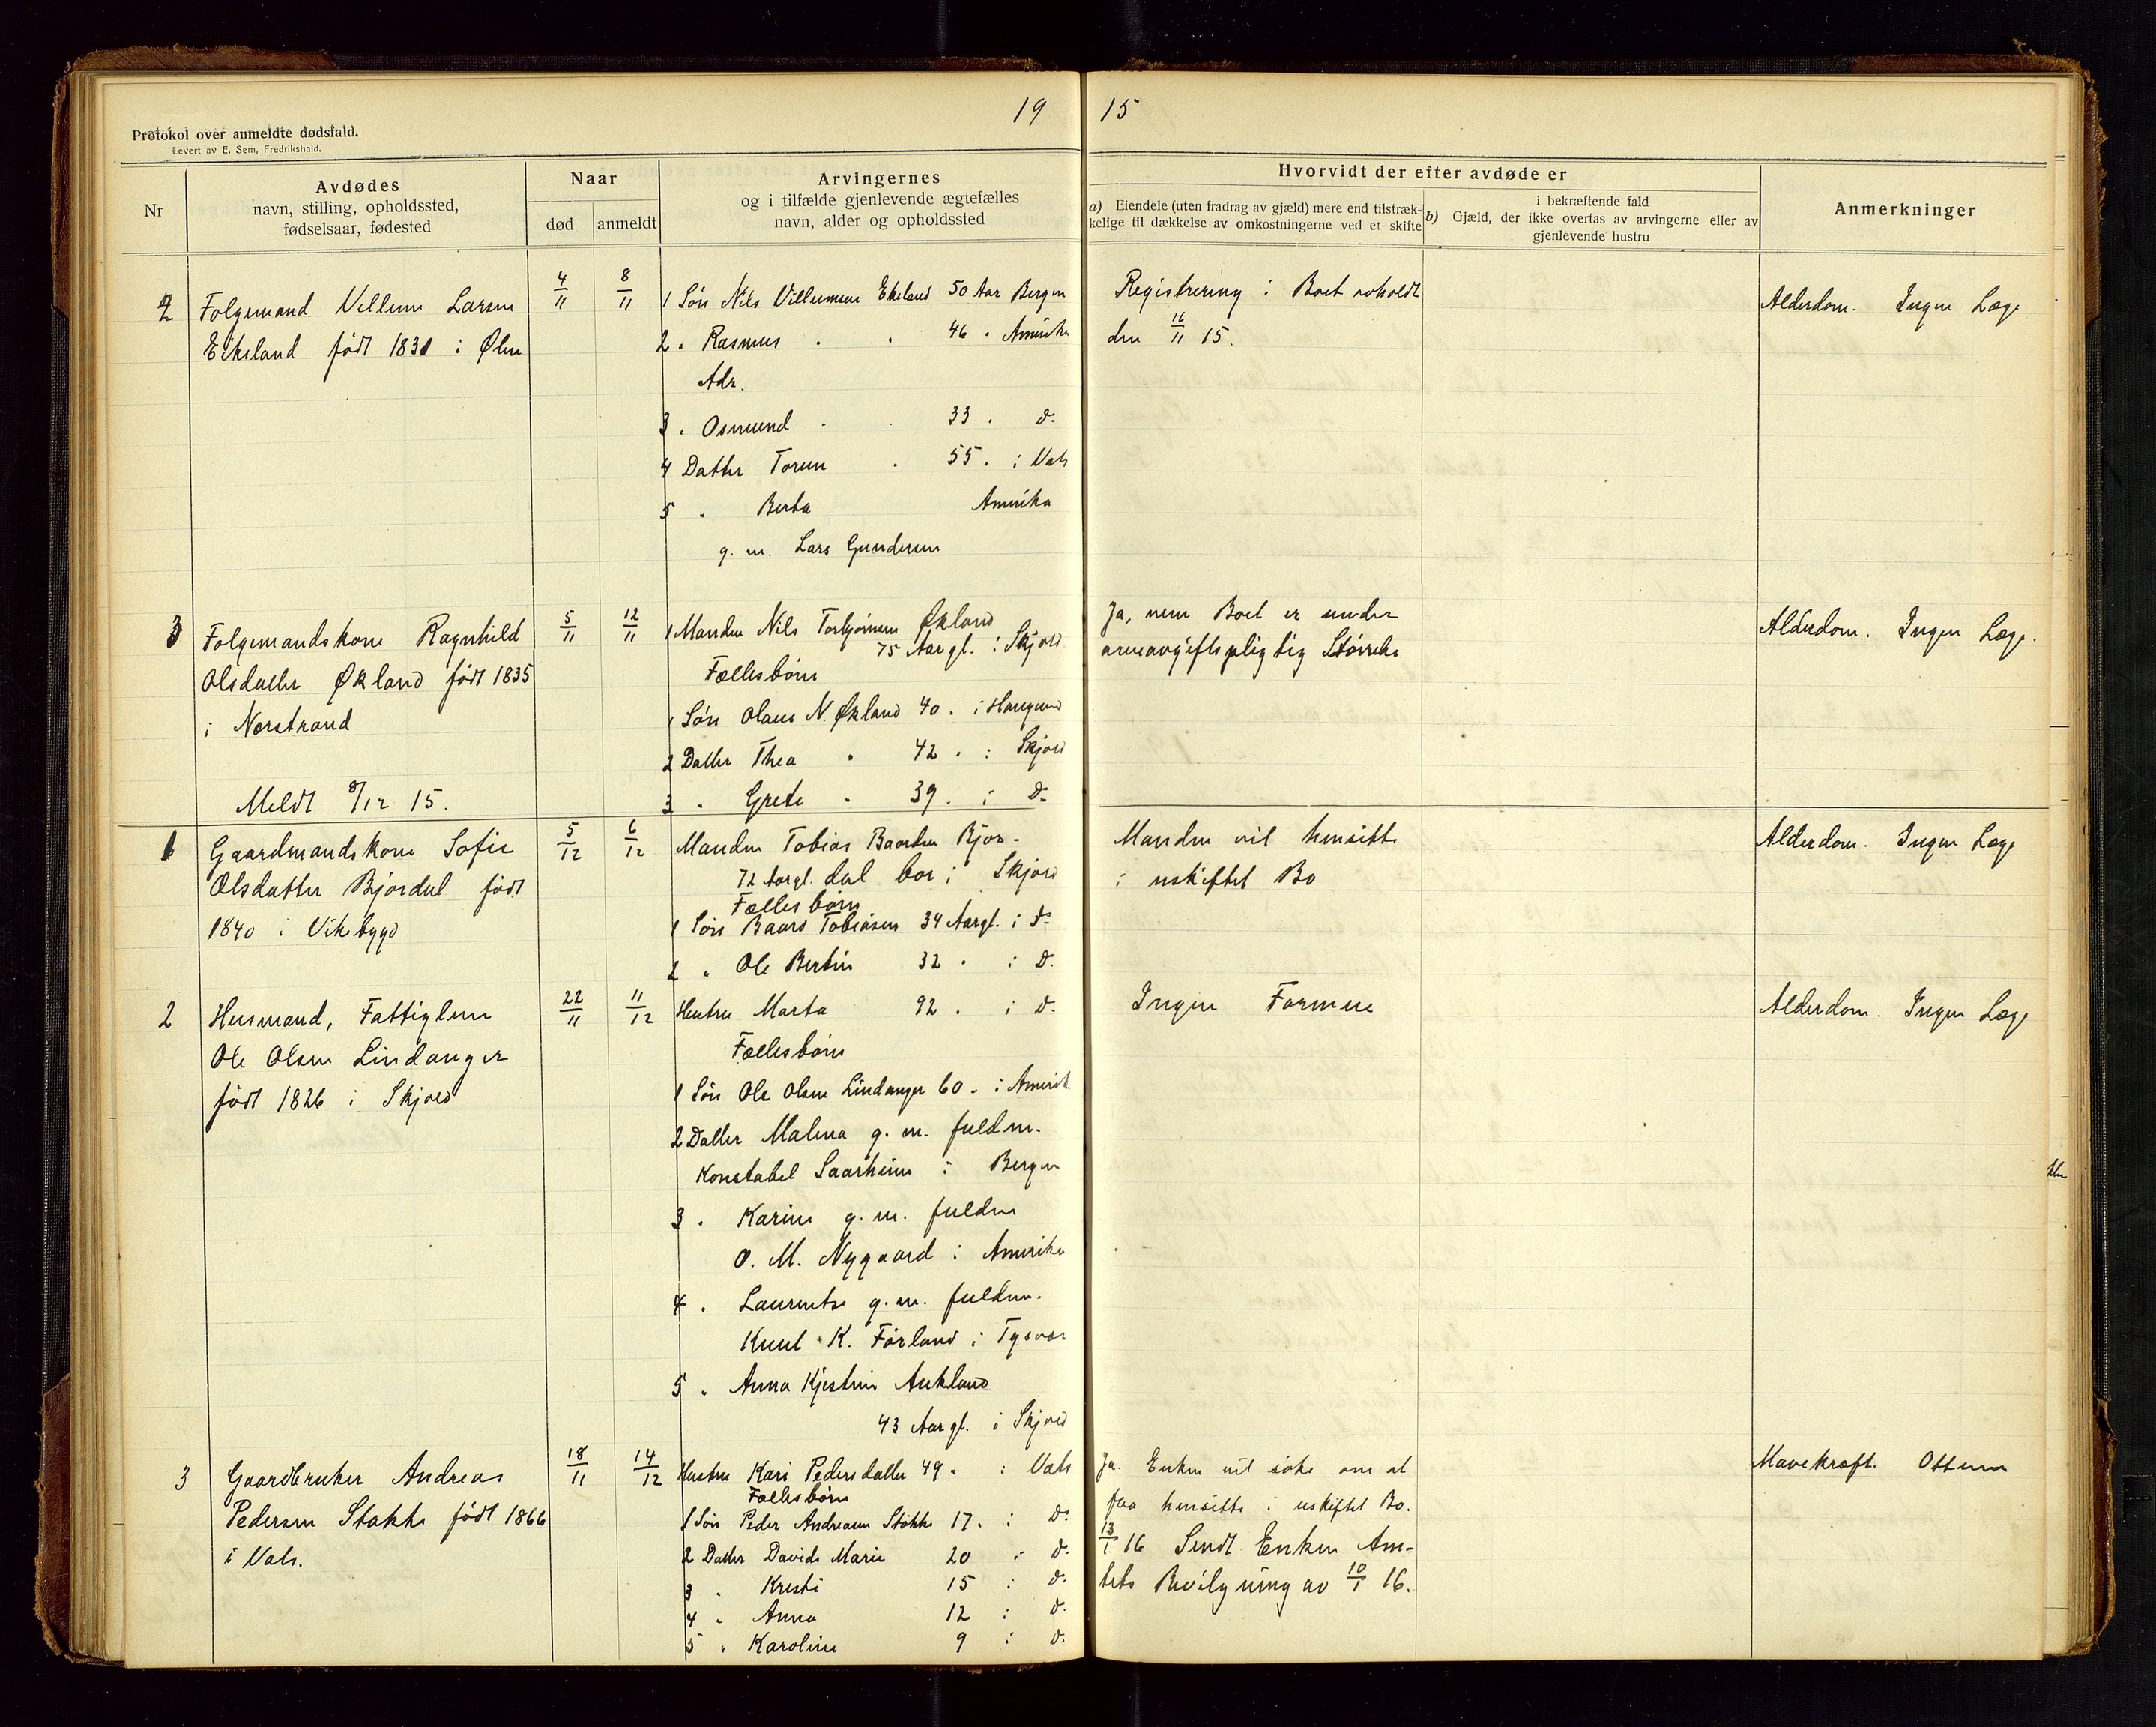 19 15
Protokol over anmeldte dødsfald.
Levert av E. Sem, Fredrikshald.
Nr
Avdødes
navn, stilling, opholdssted,
fødselsaar, fødested
Naar
død
anmeldt
Arvingernes
og i tilfælde gjenlevende ægtefælles
navn, alder og opholdssted
Hvorvidt der efter avdøde er
a) Eiendele (uten fradrag av gjæld) mere end tilstræk-
kelige til dækkelse av omkostningerne ved et skifte
i bekræftende fald
b) Gjæld, der ikke overtas av arvingerne eller av
gjenlevende hustru
Anmerkninger
2 Folgemand Vellem Larsen
Eikeland født 1831 i Ølen
4/11 8/11
1 Søn Nils Villumsen Ekeland 50 Aar Bergen
2 " Rasmus " " 46 " Amerika
Adr.
3 " Osmund " " 33 " do
4 Datter Torun " 55 " i Vats
5 " Berta Amerika
g. m. Lars Gundersen
Registrering i Boet avholdt
den 16/11 15.
Alderdom. Ingen Læge
3 Folgemandskone Ragnhild
Olsdatter Økland født 1835
i Nerstrand
Meldt 8/12 15.
5/11 12/11
1 Manden Nils Torbjørnsen Økland
75 Aar gl. i Skjold
Fællesbørn
1 Søn Olaus N. Økland 40 " i Haugesund
2 Datter Thea " 42 " i Skjold
3 " Grete " 39 " i do
Ja, men Boet er under
arveavgiftspligtig Størrelse
Alderdom. Ingen Læge.
1 Gaardmandskone Sofie
Olsdatter Bjordal født
1840 i Vikebygd
5/12 6/12
Manden Tobias Baardsen Bjor-
72 Aar gl. dal bor i Skjold
Fællesbørn
1 Søn Baard Tobiasen 34 Aar gl. i do
2 " Ole Bertin 32 " i do
Manden vil hensitte
i uskiftet Bo
Alderdom. Ingen Læge
2 Husmand, Fattiglem
Ole Olsen Lindanger
født 1826 i Skjold
22/11 11/12
Hustru Marta 92 " i do
Fællesbørn
1 Søn Ole Olsen Lindanger 60 " i Amerik
2 Datter Malena g. m. fuldm.
Konstabel Saarheim i Bergen
3 " Karine g. m. fuldm
O. M. Nygaard i Amerika
4 " Laurentse g. m. fuldm.
Knut K. Førland i Tysvær
5 " Anna Kjestine Aukland
43 Aar gl. i Skjold
Ingen Formue
Alderdom. Ingen Læge
3 Gaardbruker Andreas
Pedersen Stakke født 1866
i Vats.
18/11 14/12
Hustru Kari Pedersdatter 49 " i Vats
Fællesbørn
1 Søn Peder Andreasen Stakke 17 " i do
2 Datter Davida Marie 20 i do
3 " Kristi 15 i do
4 " Anna 12 i do
5 " Karoline 9 i do
Ja. Enken vil søke om at
faa hensitte i uskiftet Bo.
13/1 16 Sendt Enken Am-
tets Bevilgning av 10/1 16.
Mavekræft. Ottesen